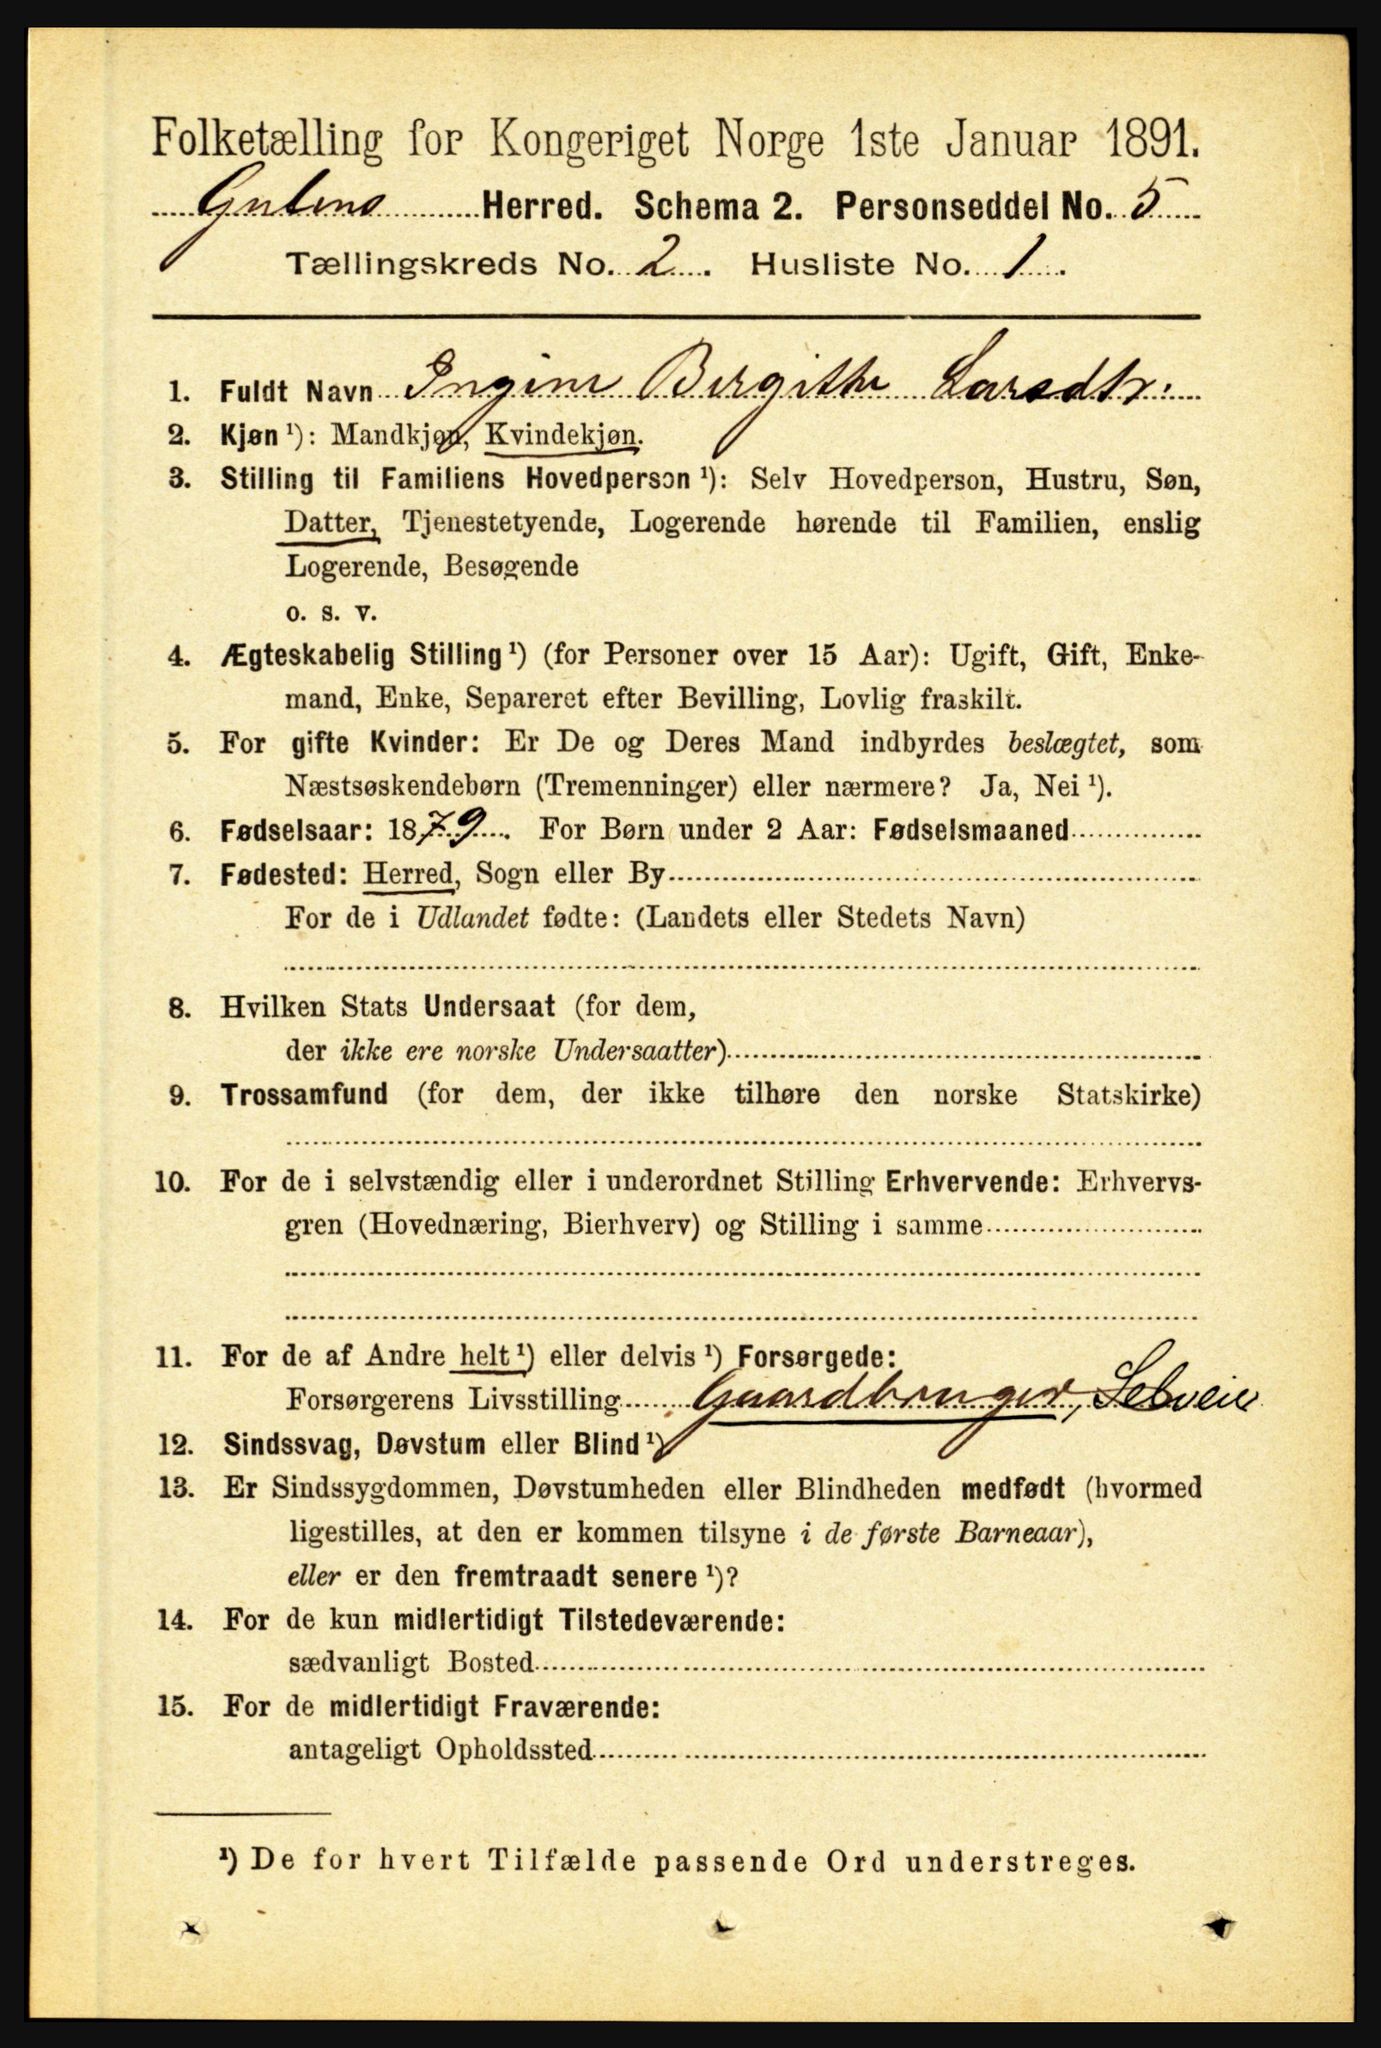 Folketælling for Kongeriget Norge 1ste Januar 1891.
Gulens Herred. Schema 2. Personseddel No. 5
Tællingskreds No. 2. Husliste No. 1.
1. Fuldt Navn Ingine Birgithe Larsdtr.
2. Kjøn ¹): Mandkjøn, Kvindekjøn.
3. Stilling til Familiens Hovedperson ¹): Selv Hovedperson, Hustru, Søn,
Datter, Tjenestetyende, Logerende hørende til Familien, enslig
Logerende, Besøgende
o. s. v.
4. Ægteskabelig Stilling ¹) (for Personer over 15 Aar): Ugift, Gift, Enke-
mand, Enke, Separeret efter Bevilling, Lovlig fraskilt.
5. For gifte Kvinder: Er De og Deres Mand indbyrdes beslægtet, som
Næstsøskendebørn (Tremenninger) eller nærmere? Ja, Nei ¹).
6. Fødselsaar: 1879. For Børn under 2 Aar: Fødselsmaaned
7. Fødested: Herred, Sogn eller By
For de i Udlandet fødte: (Landets eller Stedets Navn)
8. Hvilken Stats Undersaat (for dem,
der ikke ere norske Undersaatter)
9. Trossamfund (for dem, der ikke tilhøre den norske Statskirke)
10. For de i selvstændig eller i underordnet Stilling Erhvervende: Erhvervs-
gren (Hovednæring, Bierhverv) og Stilling i samme
11. For de af Andre helt ¹) eller delvis ¹) Forsørgede:
Forsørgerens Livsstilling Gaardbruger, Selveier
12. Sindssvag, Døvstum eller Blind ¹)
13. Er Sindssygdommen, Døvstumheden eller Blindheden medfødt (hvormed
ligestilles, at den er kommen tilsyne i de første Barneaar),
eller er den fremtraadt senere ¹)?
14. For de kun midlertidigt Tilstedeværende:
sædvanligt Bosted
15. For de midlertidigt Fraværende:
antageligt Opholdssted
¹) De for hvert Tilfælde passende Ord understreges.